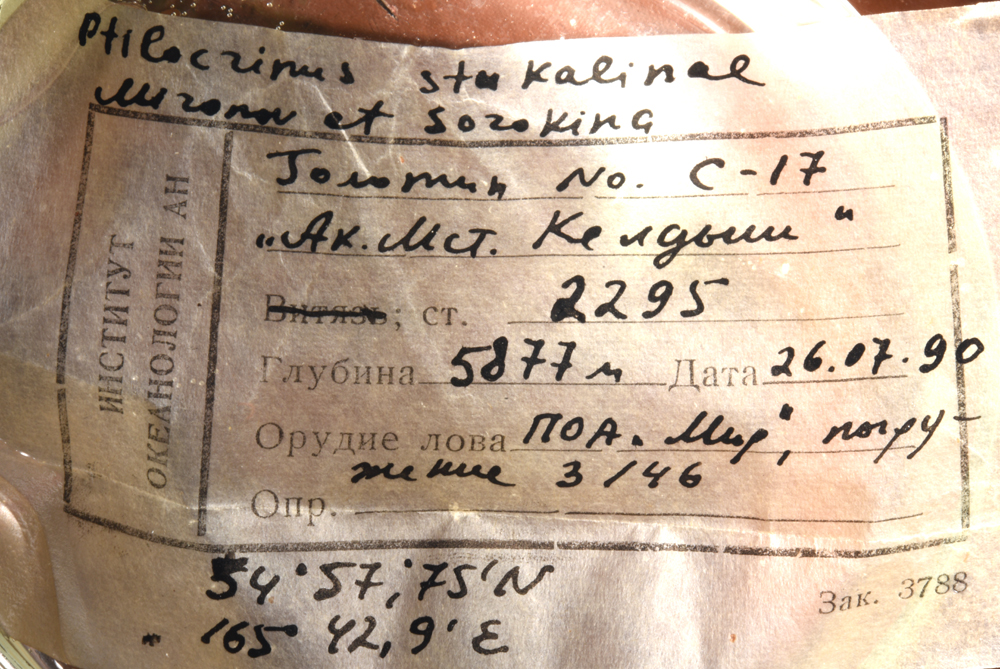 Ptilocrinus stukalinae
Mironov et Sorokina
Голотип No. С-17
„Ак. Мст. Келдыш"
Витязь; ст. 2295
Глубина 5877 м Дата 26.07.90
Орудие лова ПОА „Мир", погру-
жение 3/46
Опр.
54°57,75'N
165 42,9' E
ИНСТИТУТ
ОКЕАНОЛОГИИ АН
Зак. 3788